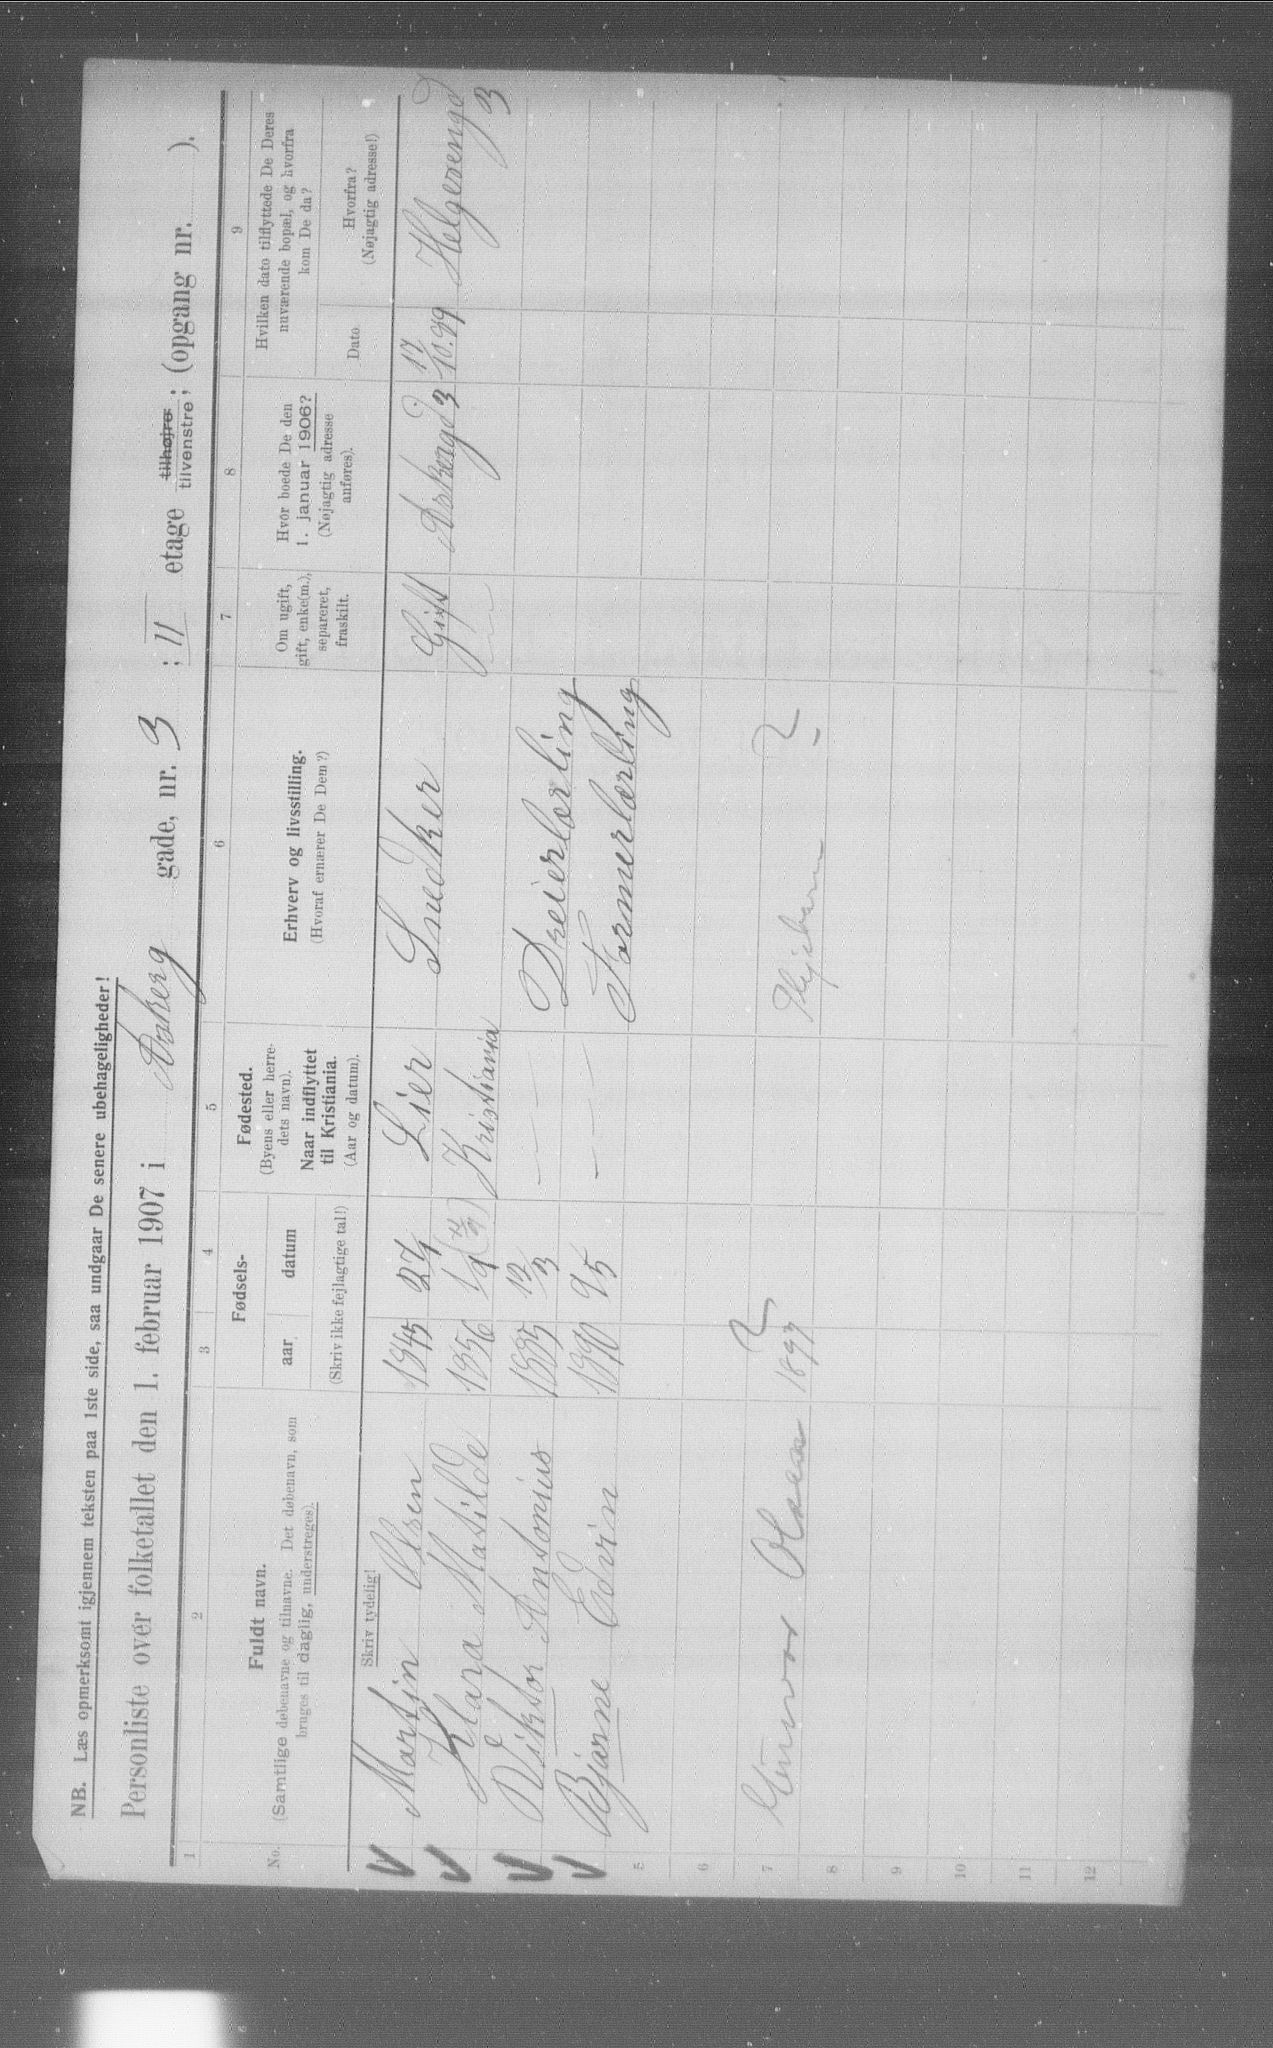 NB. Læs opmerksomt igjennem teksten paa 1ste side, saa undgaar De senere ubehageligheder!
Personliste over folketallet den 1. februar 1907 i Askerg gade, nr. 3 ; II etage tilhøjre tilvenstre; (opgang nr. ).
1 2 3 4 5 6 7 8 9
No.
Fuldt navn.
(Samtlige døbenavne og tilnavne. Det døbenavn, som
bruges til daglig, understreges).
Fødsels-
aar datum
(Skriv ikke fejlagtige tal!)
Fødested.
(Byens eller herre-
dets navn).
Naar indflyttet
til Kristiania.
(Aar og datum).
Erhverv og livsstilling.
(Hvoraf ernærer De Dem?)
Om ugift,
gift, enke(m.),
separeret,
fraskilt.
Hvor boede De den
1. januar 1906?
(Nøjagtig adresse
anføres).
Hvilken dato tilflyttede De Deres
nuværende bopæl, og hvorfra
kom De da?
Dato
Hvorfra?
(Nøjagtig adresse!)
Skriv tydelig!
Martin Olsen 1845 Lier Snedker Gift Askergd 3 17/10.99 Helgesengd 3
Klara Matilde 1856 Kristiania
Viktor Antonius 1885 12/3 Dreierlærling
4 Bjarne Edvin 1890 9/5 Formerlærling
5
6
7 Olsen 1893
8
9
10
11
12